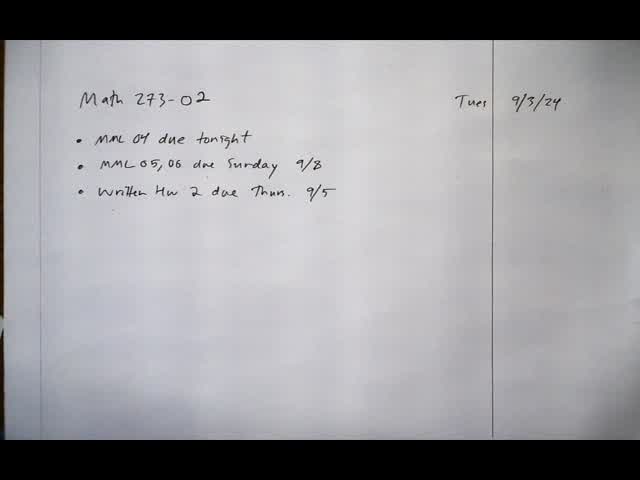 Math 273-02 Tues 9/3/24
• MML 04 due tonight
• MML 05, 06 due Sunday 9/8
• Written HW 2 due Thurs. 9/5